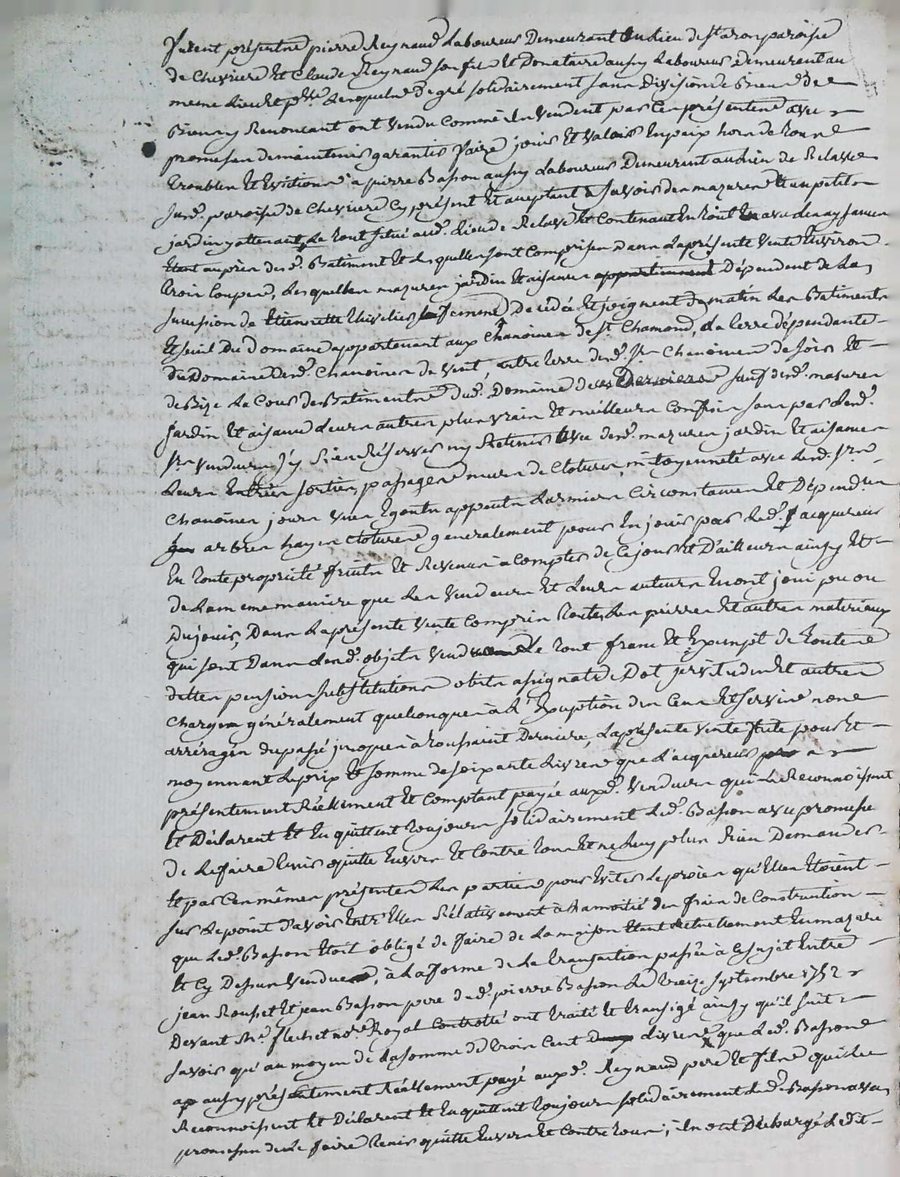 furent présents pierre Reynaud Laboureur Demeurant au Lieu de st aron paroisse
de Chevriere Et Claude Reynaud son fils Et Donataire aussy Laboureur demeurant au
meme Lieu Lesquels de gré solidairement sans Division de Biens
Renoncant ont vendu comme ils vendent par Ces présentes avec
promesse de maintenir garantir faire jouir Et valoir En paix hors de tous
troubles Et Evictions a pierre Basson aussy Laboureur Demeurant au Lieu de Relave
susd. paroisse de Cheviere Cy présent Et acceptant a savoir des mazures Et un petit
jardin y attenant, Le tout situé aud. Lieu de Relave Et Contenant En tout avec Les aysances
Etant auprès desd. Batiment Et Lesquelles sont Comprises dans La présente vente Environ
trois Coupes, Lesquelles mazures jardin Et aisances Dépendent de La
succession de Etiennette femme Décédée Et joignent de matin Les Batiments
Et seuil Du domaine appartenant aux Chanoines de st. Chamond, La terre dépendante
du Domaine desd. Chanoines de vent, autre terre desd. srs Chanoines de soir Et
de Bize La Cour des Batiments dud. Domaine de ces Derniers sauf desd. mazures
jardin Et aisances Leurs autres plus vrais Et meilleurs Confins sans par Lesd.
srs vendeurs s'y Rien Réserver ny Retenir avec desd. mazures jardin Et aisances
Leurs Entrées sorties, passages murs de Cloture, mitoyenneté avec Lesd. srs
Chanoines jours vues Egouts appents Larmiers Circonstances Et Dépend.ces
arbres hayes Clotures generalement pour En jouir par Led. acquereur
En toute propriété fruits Et Revenus à Compter de Ce jour Et D'ailleurs ainsy Et
de La meme maniere que Les vendeurs Et Leurs auteurs En ont joui pu ou
Du jouir, Dans La présente vente Compris toutes Les pierres Et autres materiaux
qui sont Dans Lesd. objets vendus Le tout franc Et Exempt de toutes
dettes pension substitutions obits assignats Dot servitudes Et autres
Charges généralement quelconques à L'Exeption des Cens Et servis nones
arrérages du passé jusques à toussaint Derniere, La présente vente faite pour Et
moyennant Le prix Et somme de soixante Livres que L'acquereur a
présentement Réellement Et Comptant payée auxd. vendeurs qui Le Reconnoissent
Et Déclarent Et En quittent toujours solidairement Led. Basson avec promesse
de Le faire tenir quitte Envers Et Contre tous Et ne Luy plus Rien Demander
Et par Ces mêmes présentes Les parties pour Eviter Le procès qu'Elles Etoient
sur Le point d'avoir Entr'Elles Rélativement à La moitié des frais de Construction
que Led. Basson Etoit obligé de faire de La maison Etant actuellement En mazure
Et Cy Dessus vendue, à La forme de La transaction passée à Ce sujet Entre
jean Rousset Et jean Basson pere dud. pierre Basson Le treize septembre 1752
Devant Me. flechet nore. Royal Controllé ont traité Et transigé ainsy qu'il suit
savoir qu'au moyen de La somme de trois Cent Livres que Led. Basson
a aussy présentement Réellement payé auxd. Reynaud pere Et fils qui Le
Reconnoissent Et Déclarent Et En quittent toujours solidairement Led. Basson avec
promesse de Le faire tenir quitte Envers Et Contre tous; ils ont Déchargé Ledit